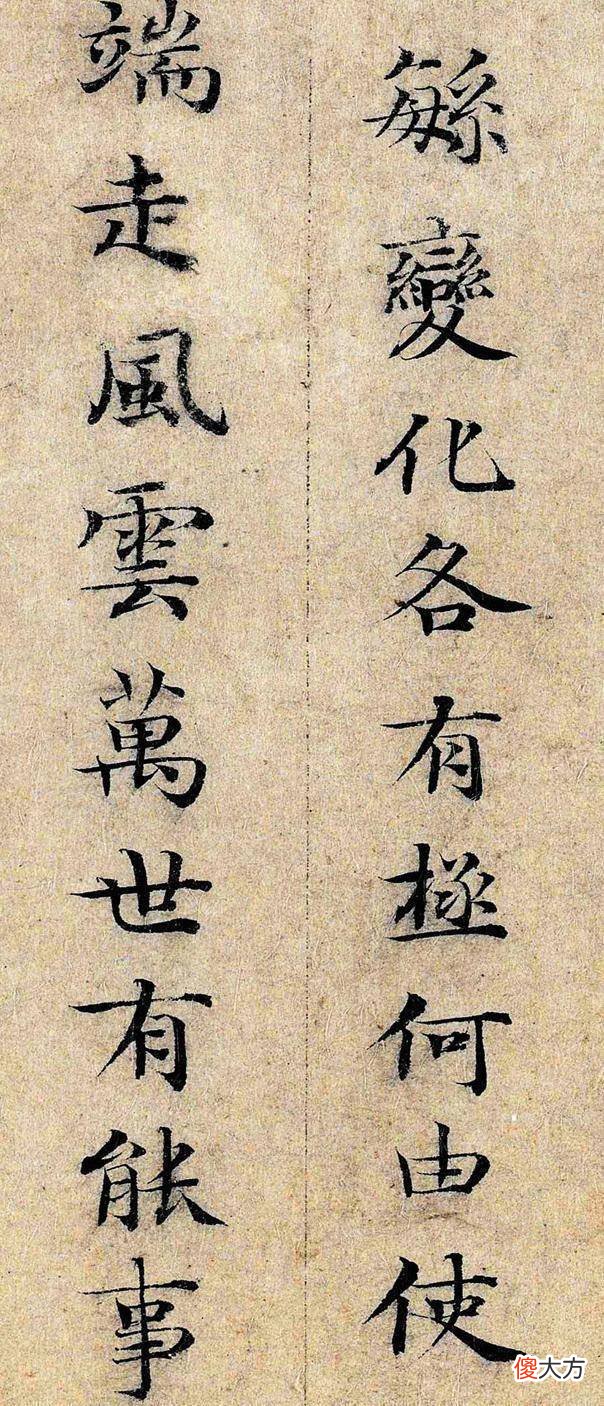 緐變化各有極何由使
端走風雲萬世有能事
傻大方